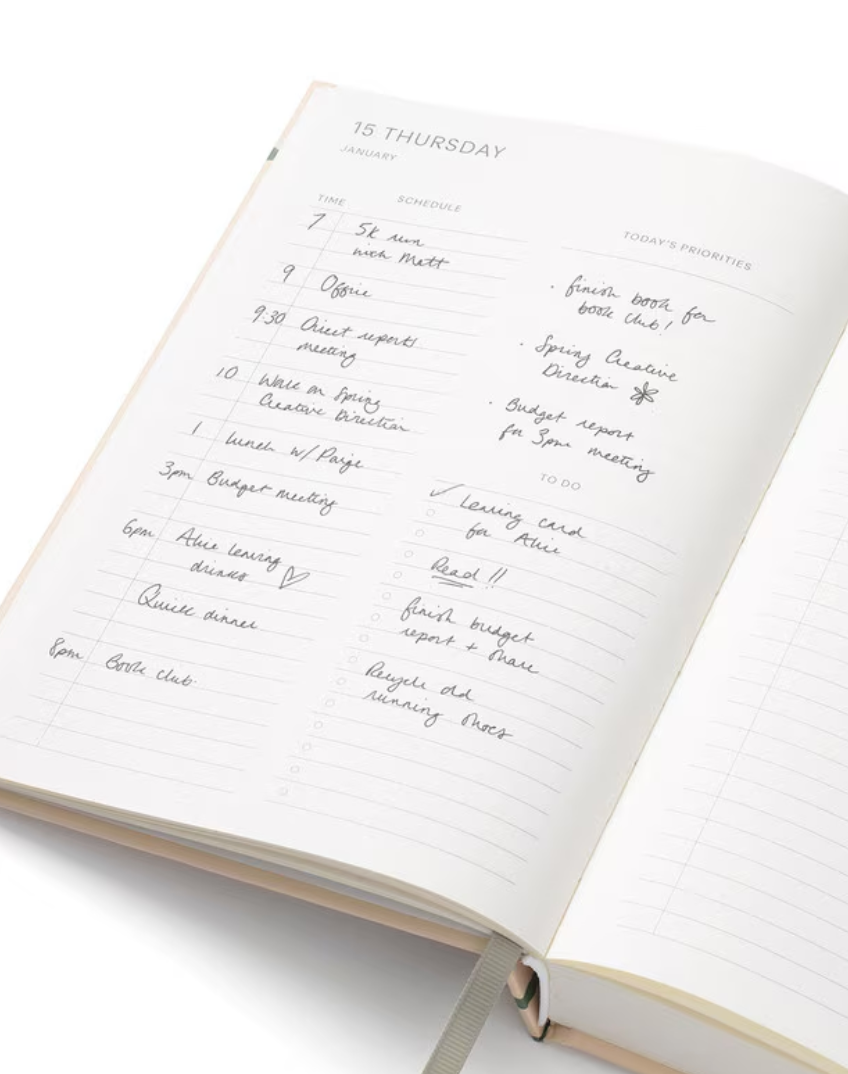 15 THURSDAY
JANUARY
TIME SCHEDULE
7 5k run
with Matt
9 Office
9:30 Direct reports
meeting
10 Work on Spring
Creative Direction
1 Lunch w/ Paige
3pm Budget meeting
6pm Alice leaving
drinks ♡
Quick dinner
8pm Book club
TODAY'S PRIORITIES
• finish book for
book club!
• Spring Creative
Direction
• Budget report
for 3pm meeting
TO DO
✓ Leaving card
for Alice
Read!!
finish budget
report + share
Recycle old
running shoes